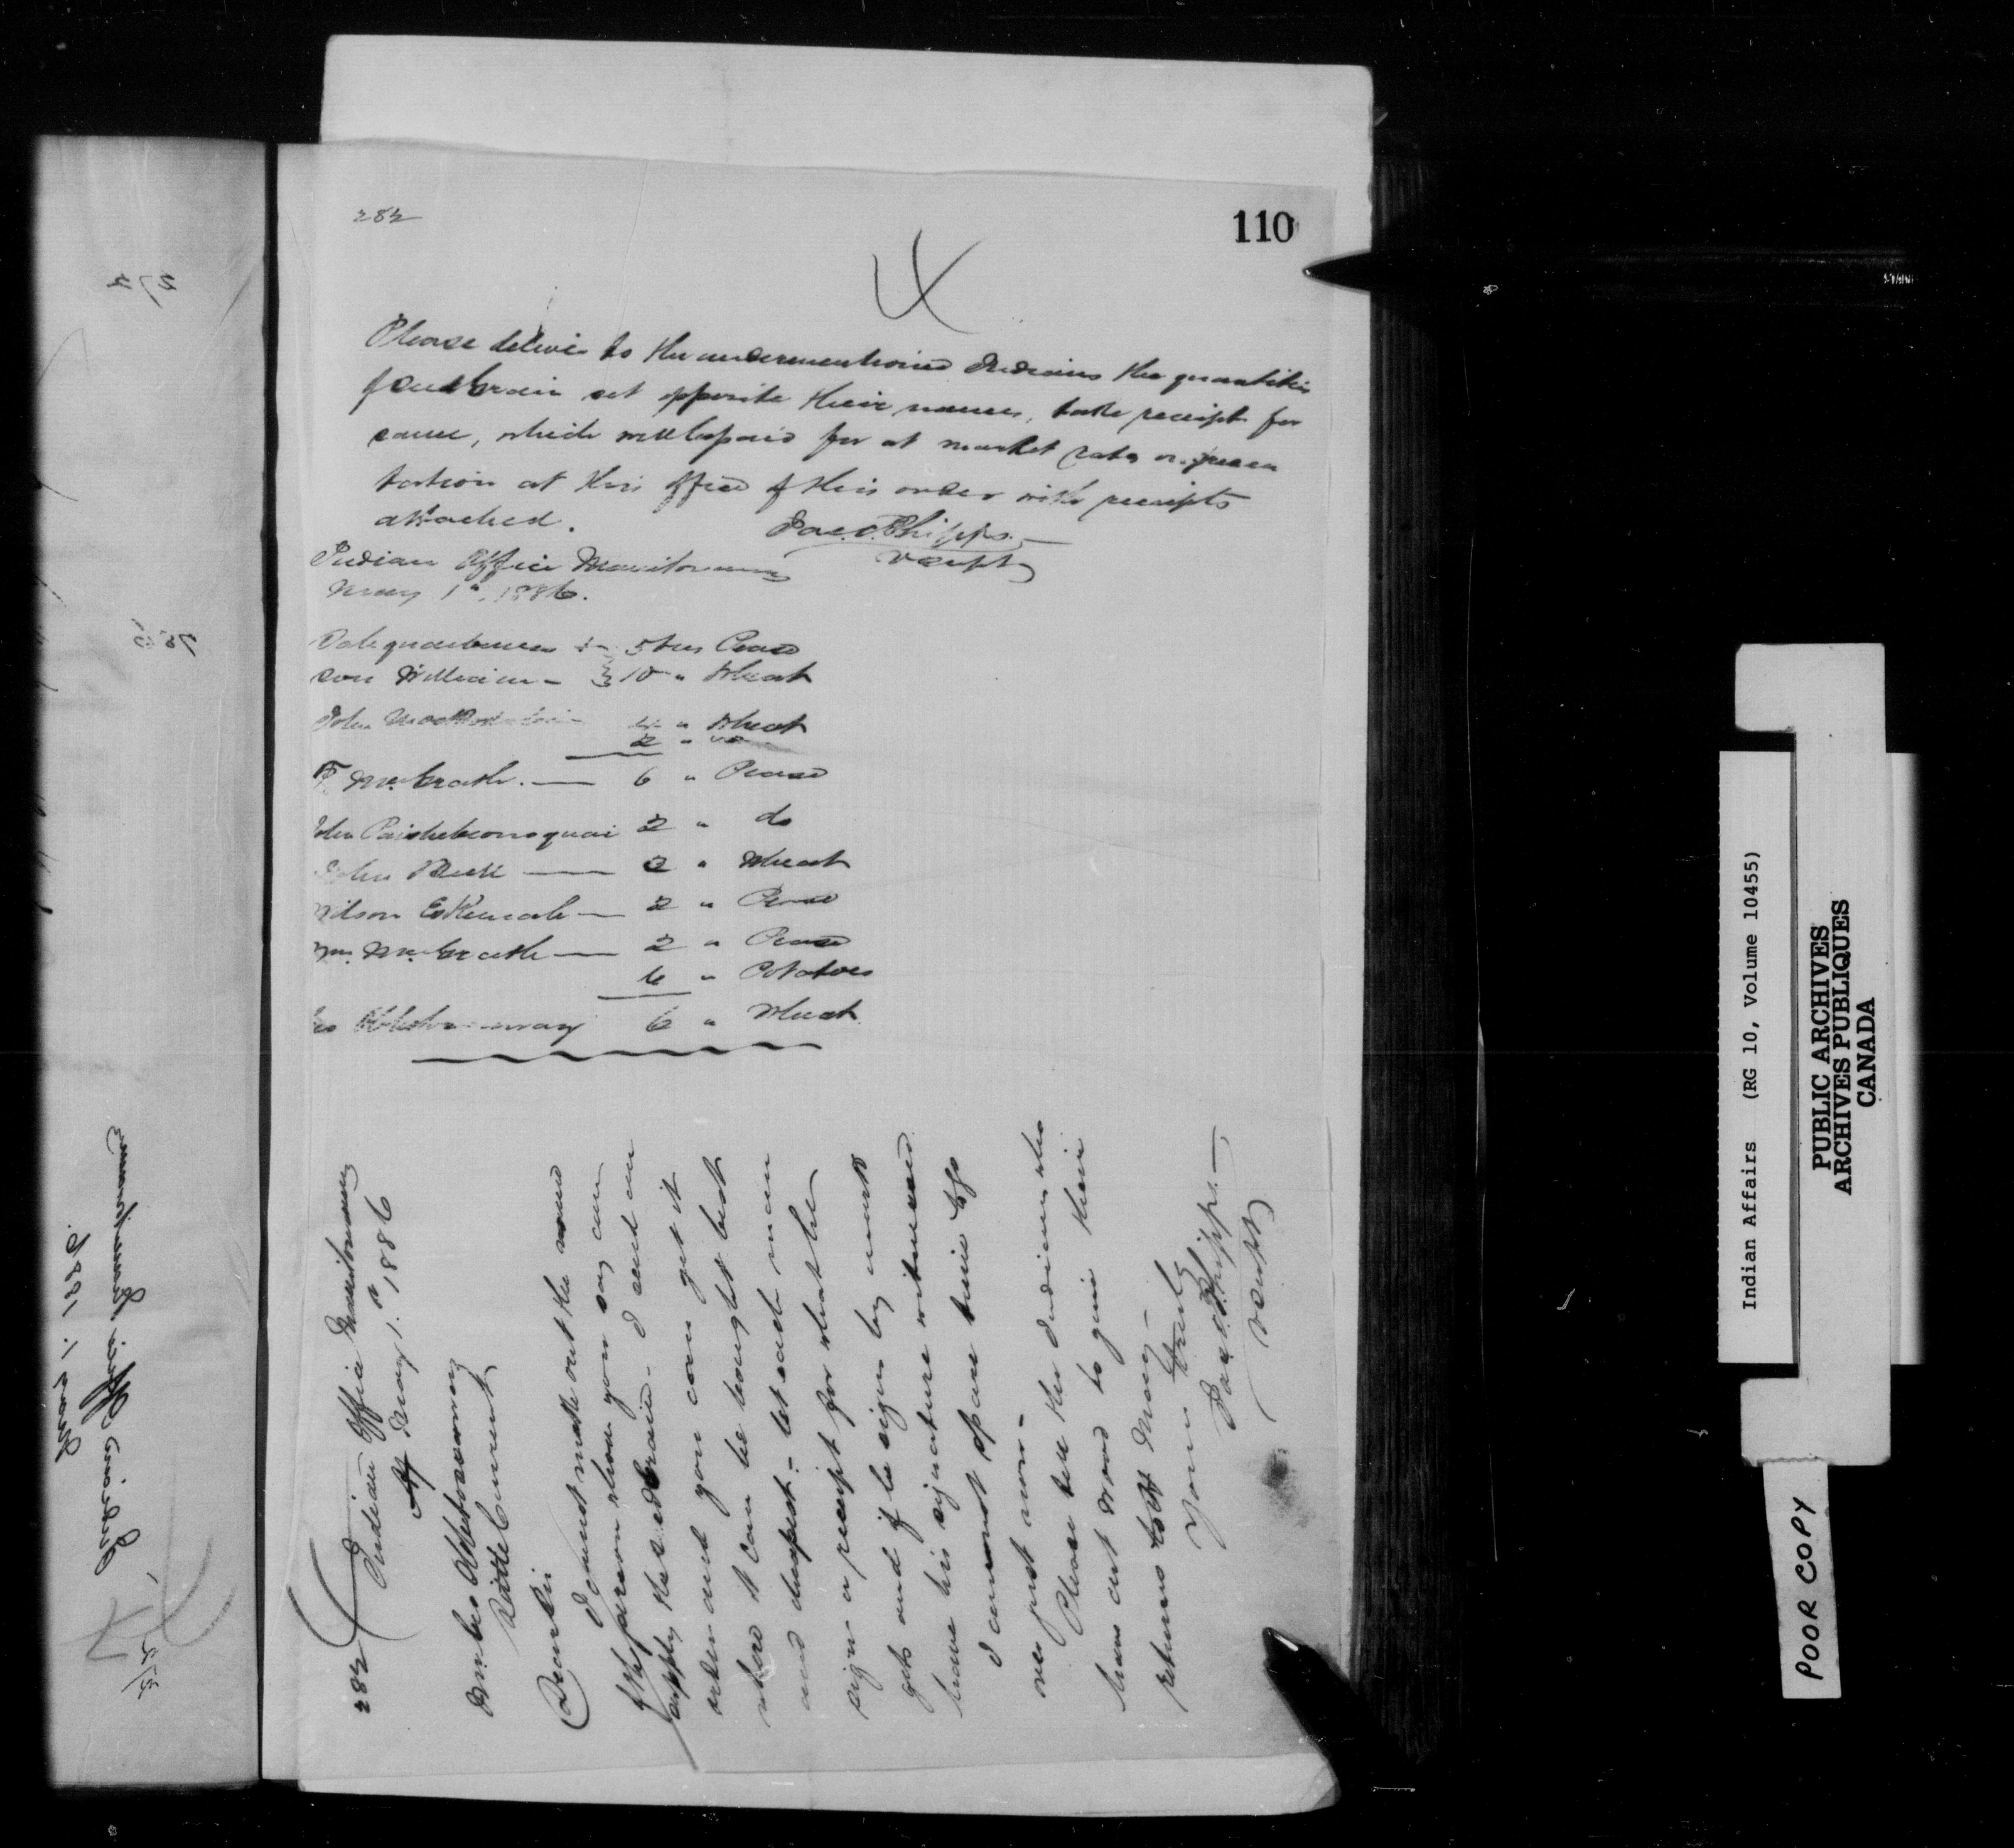 282
110
Please deliver to the undermentioned Indians the quantities
of seed Grain set opposite their names, take receipt for
same, which will be paid for at market rates on presen
tation at this office of this order with receipts
attached.
Jas. C. Phipps.
V Supt
Indian Office Manitowaning
May 1st 1886.
5 bus Pease
son William - 10 " Wheat
John 4 " Wheat
2 "
F. McGrath. — 6 " Pease
John 2 " do
John Bell — 2 " Wheat
Wilson Eskemah — 2 " Pease
Wm. McGrath — 2 " Pease
6 " Potatoes
6 " Wheat
282
Indian Office Manitowaning
May 1st 1886
Mr Geo
Little Current
Dear Sir
I cannot make out the name
of the person whom you say can
supply the seed Grain - I send an
order and you can get it
where it can be bought best
and cheapest - let each man
sign a receipt for what he
gets and if he signs by mark
have his signature witnessed.
I cannot spare time to go
over just now -
Please tell the Indians who
have cut wood to give their
returns to
Yours truly
Jas. C. Phipps. —
V Supt
May 1. 1886.
Indian Office
Indian Affairs (RG 10, Volume 10455)
PUBLIC ARCHIVES
ARCHIVES PUBLIQUES
CANADA
POOR COPY